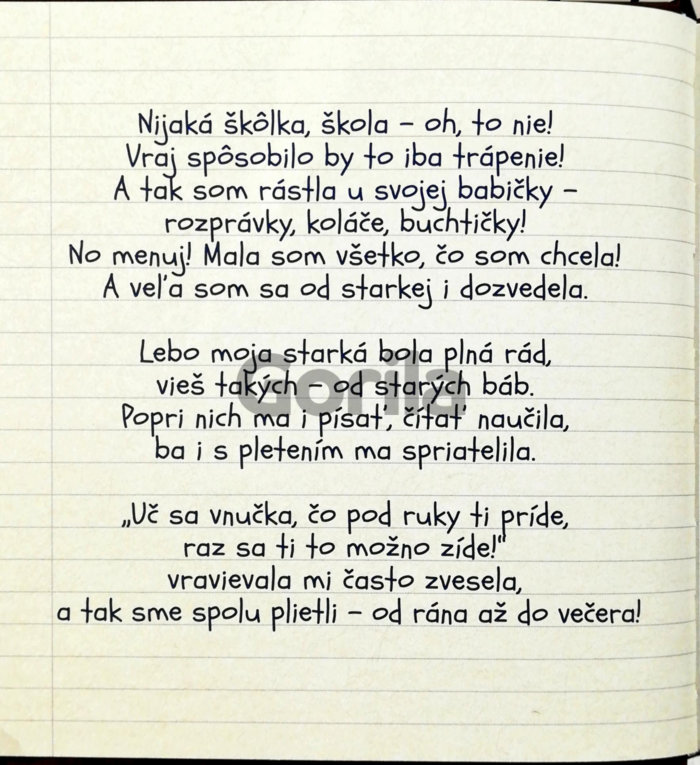 Nijaká škôlka, škola – oh, to nie!
Vraj spôsobilo by to iba trápenie!
A tak som rástla u svojej babičky –
rozprávky, koláče, buchtičky!
No menuj! Mala som všetko, čo som chcela!
A veľa som sa od starkej i dozvedela.
Lebo moja starká bola plná rád,
vieš takých – od starých báb.
Gorila
Popri nich ma i písať, čítať naučila,
ba i s pletením ma spriatelila.
„Uč sa vnučka, čo pod ruky ti príde,
raz sa ti to možno zíde!"
vravievala mi často zvesela,
a tak sme spolu plietli – od rána až do večera!